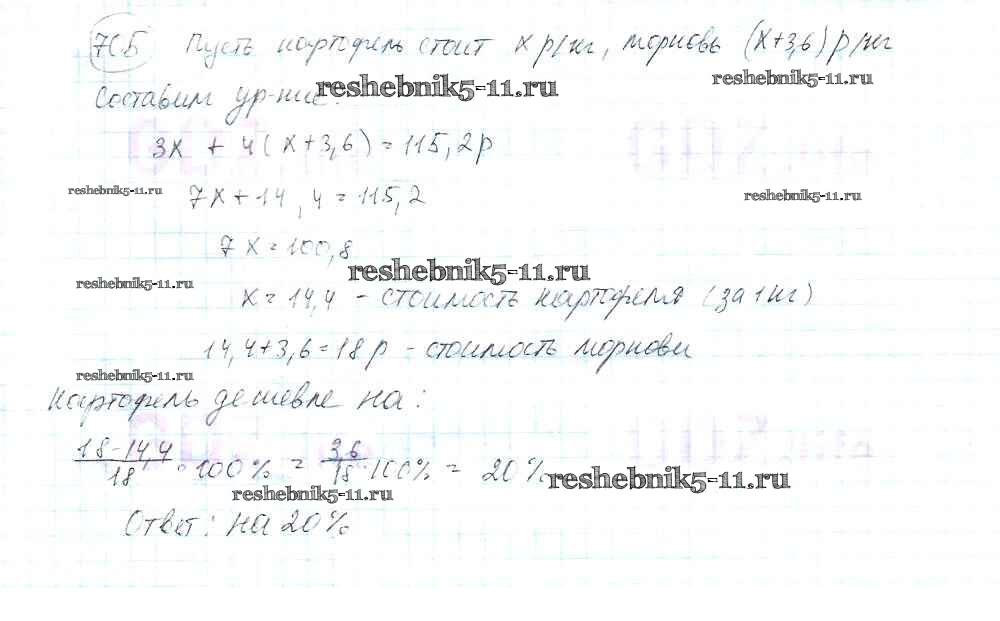 705 Пусть картофель стоит x р/кг, морковь (x+3,6) р/кг
reshebnik5-11.ru
reshebnik5-11.ru
Составим ур-ние:
3x + 4(x+3,6)=115,2р
reshebnik5-11.ru
7x+14,4=115,2
reshebnik5-11.ru
7x=100,8
reshebnik5-11.ru
reshebnik5-11.ru
x=14,4 - стоимость картофеля (за 1 кг)
14,4+3,6=18р - стоимость моркови
reshebnik5-11.ru
Картофель дешевле на:
18-14,4/18 · 100% = 3,6/18 · 100% = 20%
reshebnik5-11.ru
reshebnik5-11.ru
Ответ: на 20%